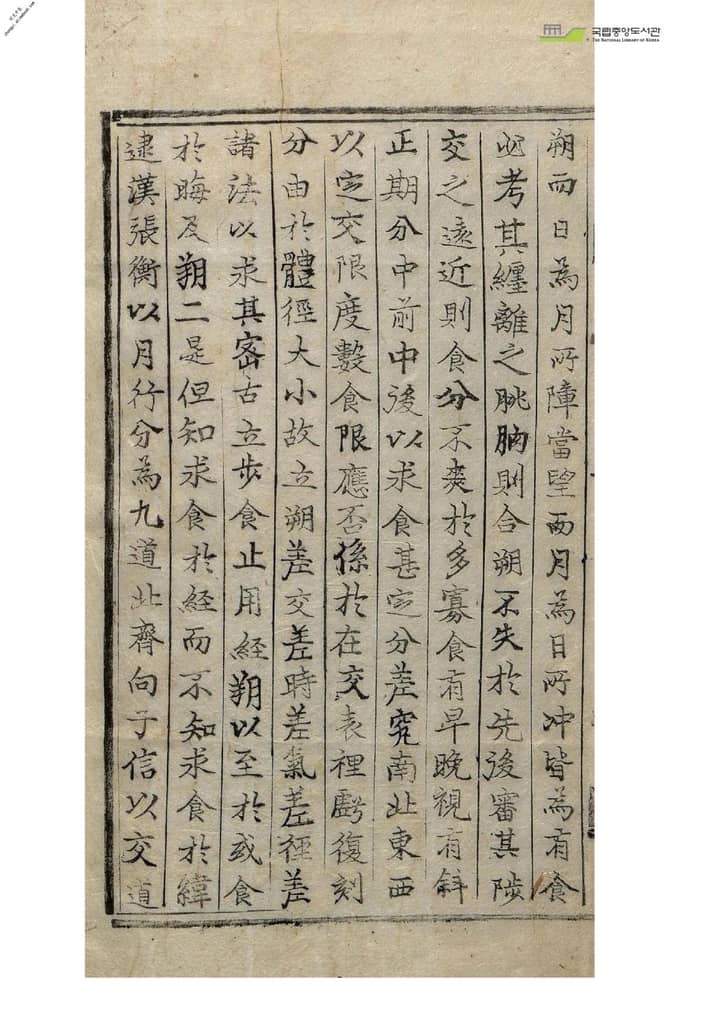 국립중앙도서관
THE NATIONAL LIBRARY OF KOREA
朔而日為月所障當望而月為日所冲皆為有食
必考其纏離之朓朒則合朔不失於先後審其陟
交之遠近則食分不爽於多寡食有早晚視有斜
正期分中前中後以求食甚定分差究南北東西
以定交限度數食限應否係於在交表裡虧復刻
分由於體徑大小故立朔差交差時差氣差徑差
諸法以求其密古立步食止用経朔以至於或食
於晦及朔二是但知求食於経而不知求食於緯
逮漢張衡以月行分為九道北齊向子信以交道